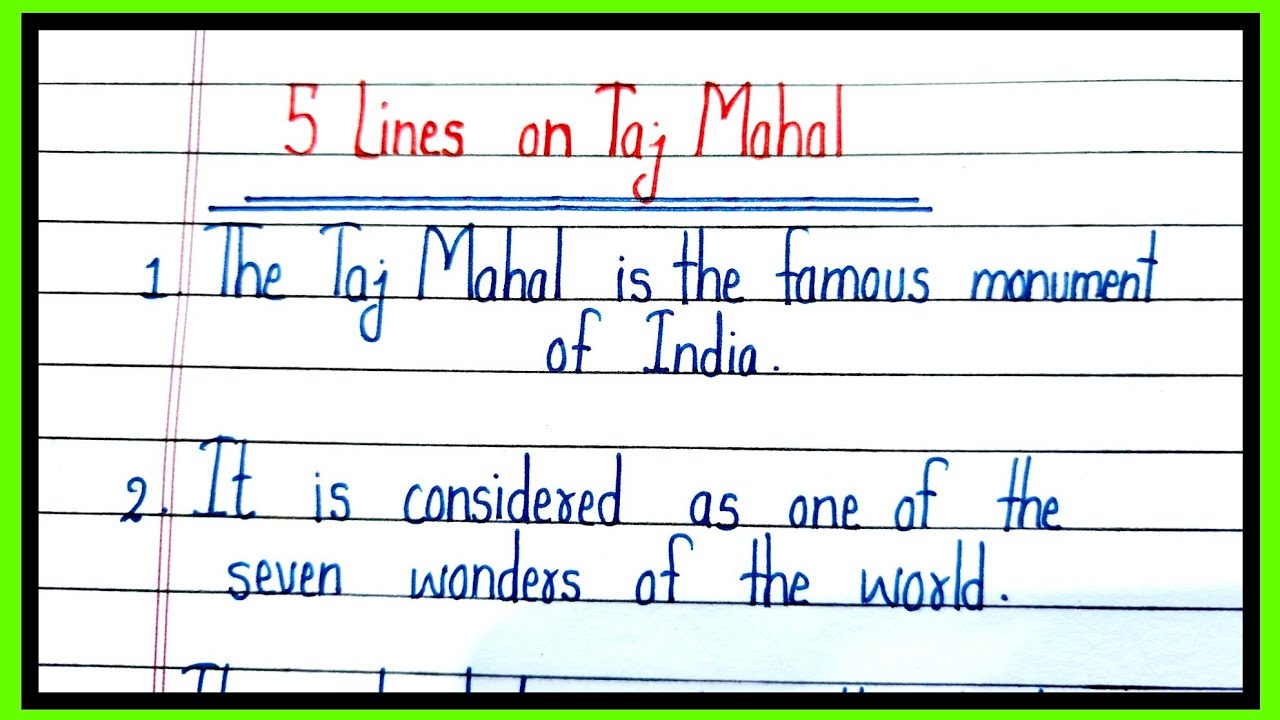 5 Lines on Taj Mahal
1. The Taj Mahal is the famous monument
of India.
2. It is considered as one of the
seven wonders of the world.